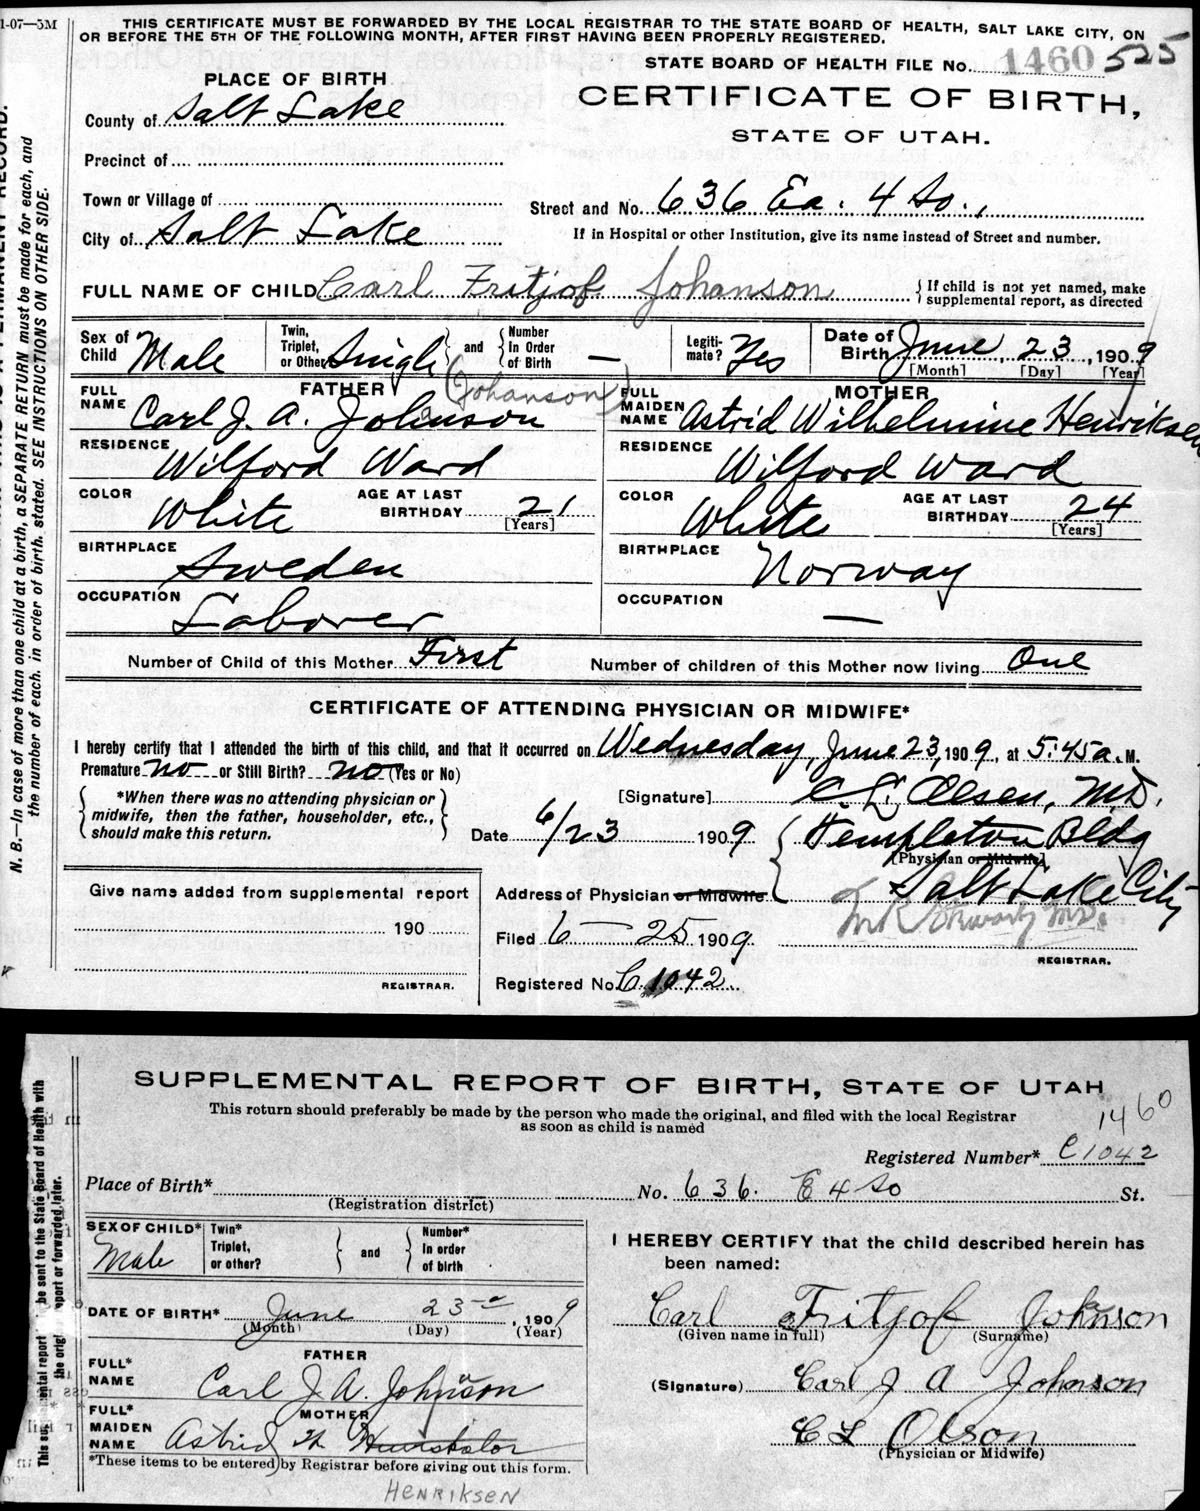 1-07—5M
THIS CERTIFICATE MUST BE FORWARDED BY THE LOCAL REGISTRAR TO THE STATE BOARD OF HEALTH, SALT LAKE CITY, ON
OR BEFORE THE 5TH OF THE FOLLOWING MONTH, AFTER FIRST HAVING BEEN PROPERLY REGISTERED.
STATE BOARD OF HEALTH FILE No. 1460 525
PLACE OF BIRTH
CERTIFICATE OF BIRTH,
STATE OF UTAH.
County of Salt Lake
Precinct of
Town or Village of
Street and No. 636 Ea. 4 So.,
City of Salt Lake
If in Hospital or other Institution, give its name instead of Street and number.
FULL NAME OF CHILD Carl Fritjof Johanson
{ If child is not yet named, make
supplemental report, as directed
Sex of Child Male
Twin, Triplet, or Other Single
and
Number In Order of Birth —
Legiti-mate? Yes
Date of Birth June, 23, 1909
[Month] [Day] [Year]
FATHER
(Johanson)
FULL NAME Carl J. A. Johnson
MOTHER
FULL MAIDEN NAME Astrid Wilhelmine Henriksen
RESIDENCE Wilford Ward
RESIDENCE Wilford Ward
COLOR White
AGE AT LAST BIRTHDAY 21
[Years]
COLOR White
AGE AT LAST BIRTHDAY 24
[Years]
BIRTHPLACE Sweden
BIRTHPLACE Norway
OCCUPATION Laborer
OCCUPATION —
Number of Child of this Mother First
Number of children of this Mother now living One
CERTIFICATE OF ATTENDING PHYSICIAN OR MIDWIFE*
I hereby certify that I attended the birth of this child, and that it occurred on Wednesday, June 23, 1909, at 5:45 a. M.
Premature no or Still Birth? no (Yes or No)
*When there was no attending physician or
midwife, then the father, householder, etc.,
should make this return.
[Signature] C. L. Olsen, M.D.
Date 6/23 1909
Templeton Bldg
[Physician or Midwife]
Salt Lake City
Give name added from supplemental report
190
REGISTRAR.
Address of Physician or Midwife
Filed 6 — 25 1909
REGISTRAR.
Registered No. C 1042
N. B.—In case of more than one child at a birth, a SEPARATE RETURN must be made for each, and
the number of each, in order of birth, stated. SEE INSTRUCTIONS ON OTHER SIDE.
SUPPLEMENTAL REPORT OF BIRTH, STATE OF UTAH
This return should preferably be made by the person who made the original, and filed with the local Registrar
as soon as child is named
1460
Registered Number* C1042
Place of Birth*
(Registration district)
No. 636. E 4 So St.
SEX OF CHILD* Male
Twin* Triplet, or other?
and
Number* In order of birth
DATE OF BIRTH* June 23rd, 1909
(Month) (Day) (Year)
FATHER
FULL* NAME Carl J. A. Johnson
MOTHER
FULL* MAIDEN NAME Astrid W.
*These items to be entered by Registrar before giving out this form.
HENRIKSEN
I HEREBY CERTIFY that the child described herein has
been named:
Carl Fritjof Johnson
(Given name in full) (Surname)
(Signature) Carl J A Johnson
C L Olson
(Physician or Midwife)